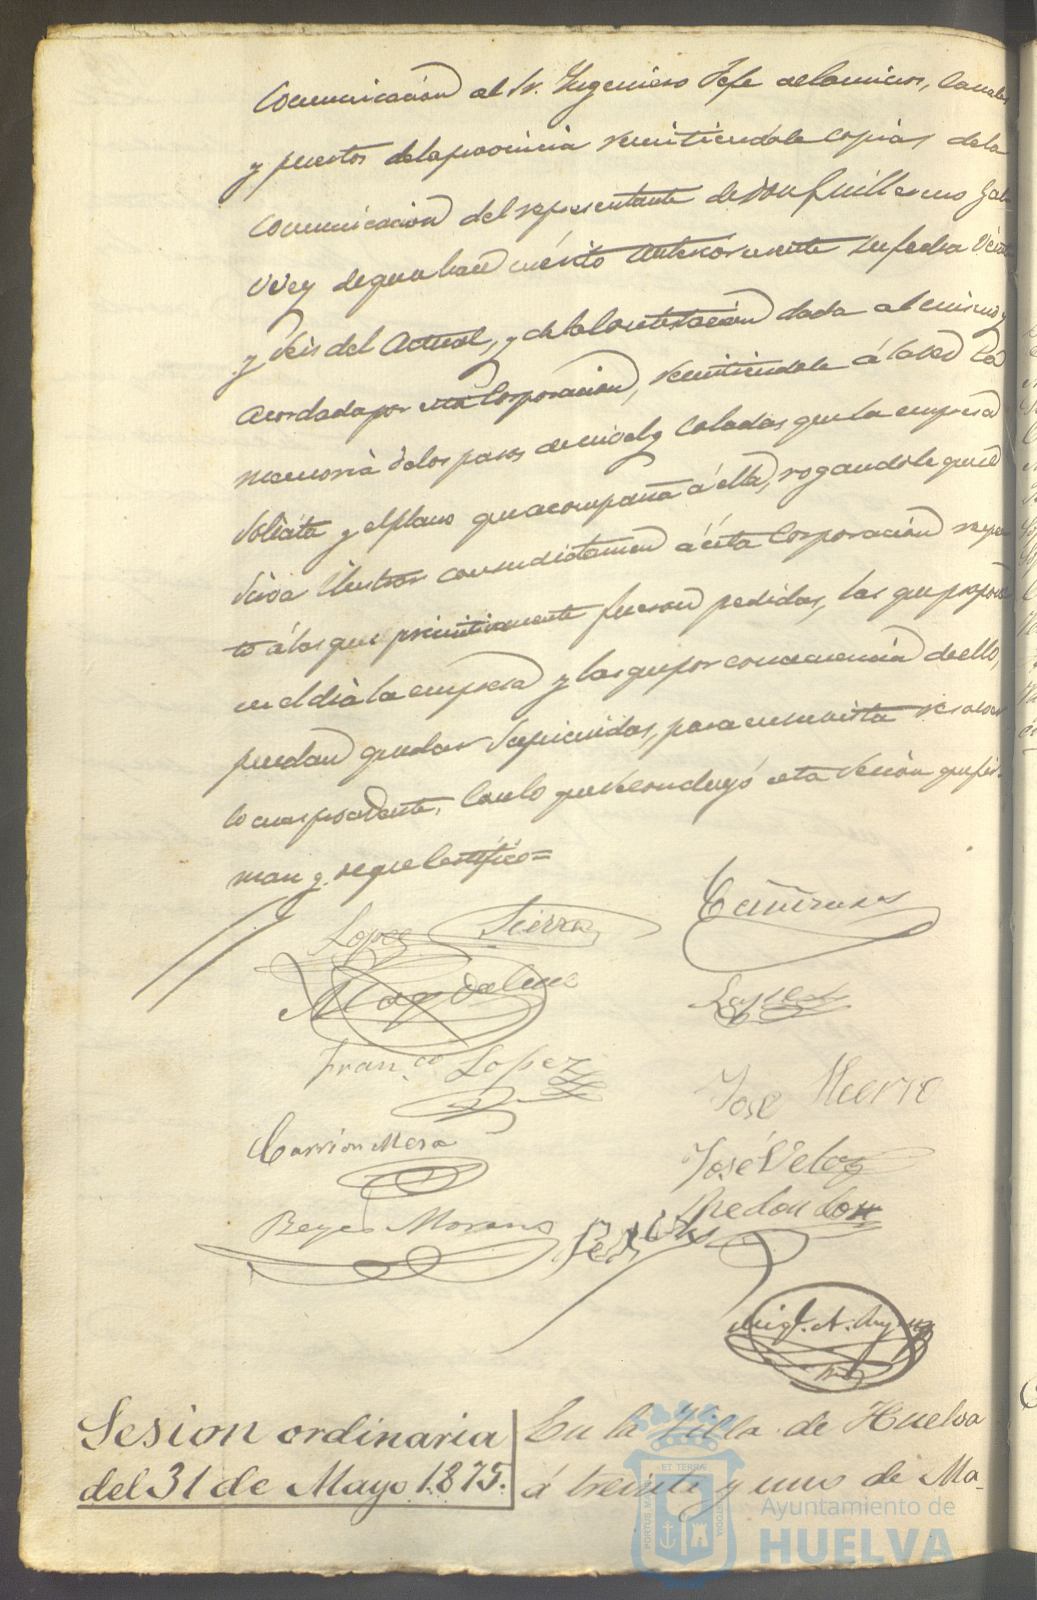 Comunicación al Sr. Ingeniero Jefe de caminos, canales
y puertos de la provincia remitiendole copias de la
comunicacion del representante de Don Guillermo
de que se hace mérito anteriormente su fecha veinte
y seis del actual, y de la contestación dada al mismo y
acordada por esta Corporacion, remitiendole á la vez la
memoria de los pasos de nivel y coladas que la empresa
solicita y el plano que acompaña á ella, rogandole que se
sirva ilustrar con su dictamen á ésta Corporación respec
to á los que primitivamente fueron pedidas, las que propone
en el dia la empresa y las que por consecuencia de ello,
puedan quedar suprimidas, para en su vista resolver
lo mas procedente. Con lo que se concluyó esta sesión que fir-
man y de que Certifico=
Lopez Sierra
Magdalena
Lopez
Fran.co Lopez
José
Carrion Mesa
José Veloz
Redondo
Reyes Moreno
Sesion ordinaria
del 31 de Mayo 1.875.
En la Villa de Huelva
á treinta y uno de Ma-
Ayuntamiento de
HUELVA